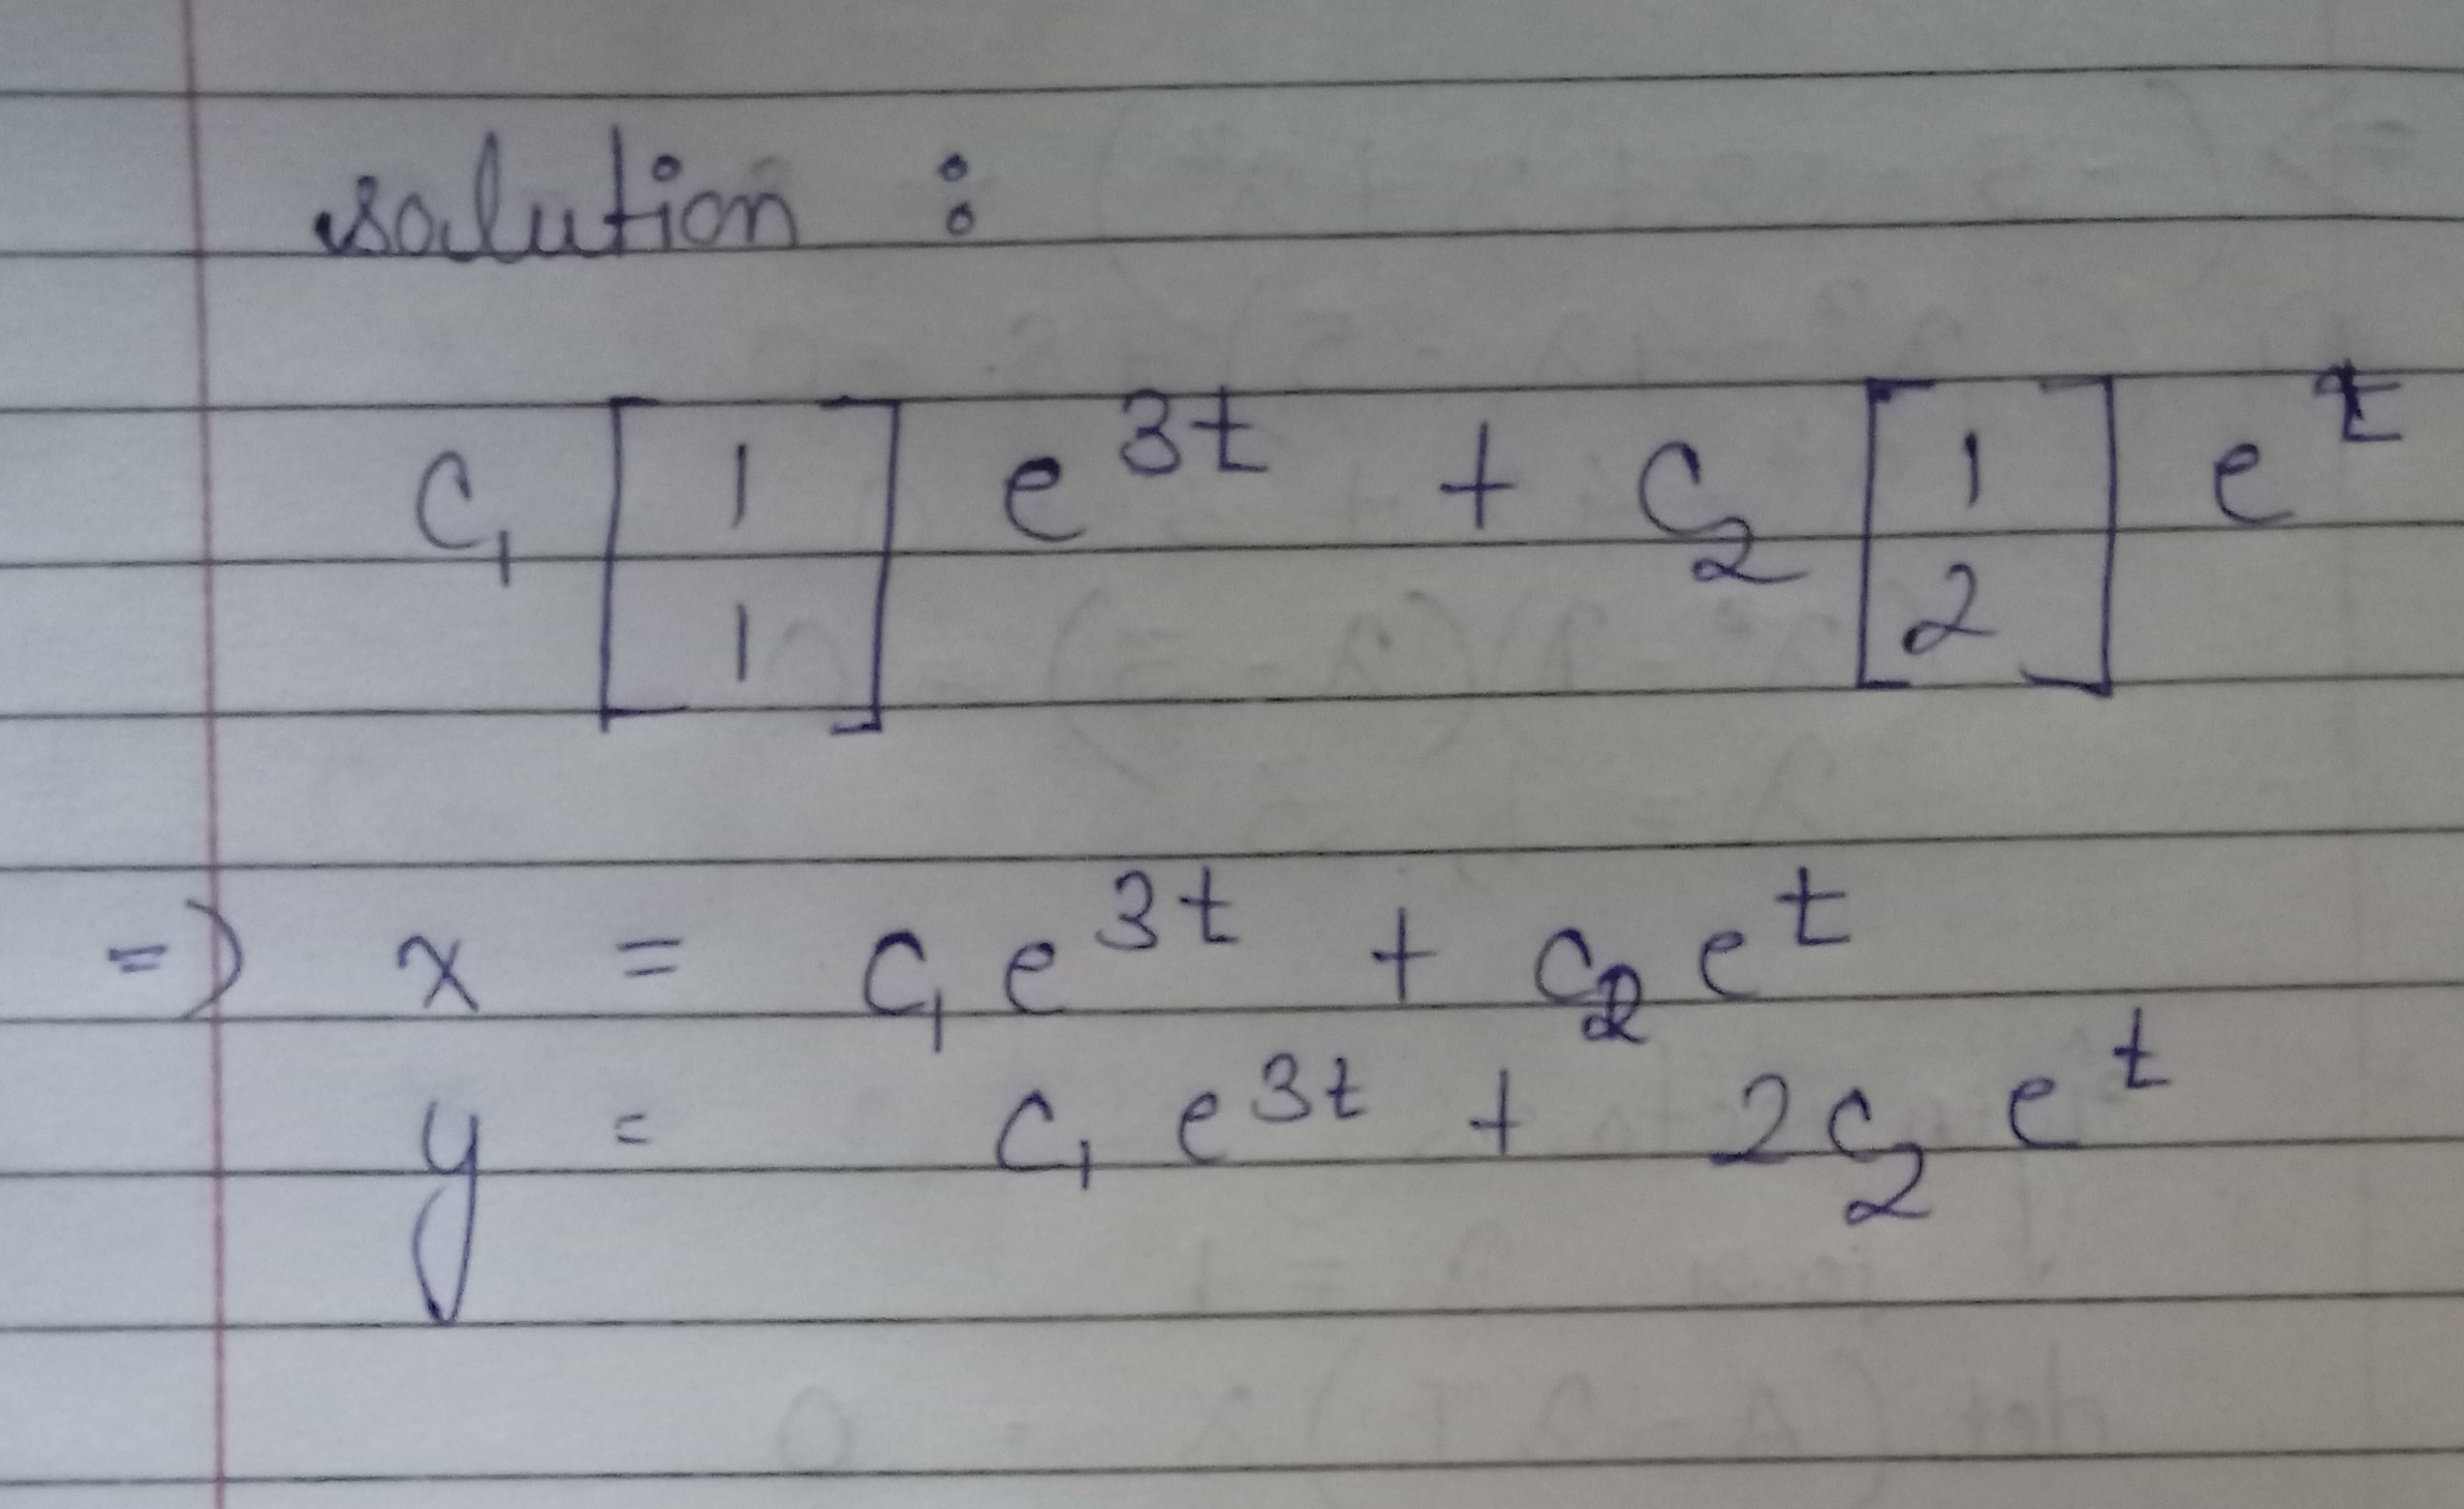 solution :
c₁ [1 1] e^{3t} + c₂ [1 2] e^{t}
=> x = c₁e^{3t} + c₂e^{t}
y = c₁ e^{3t} + 2c₂ e^{t}